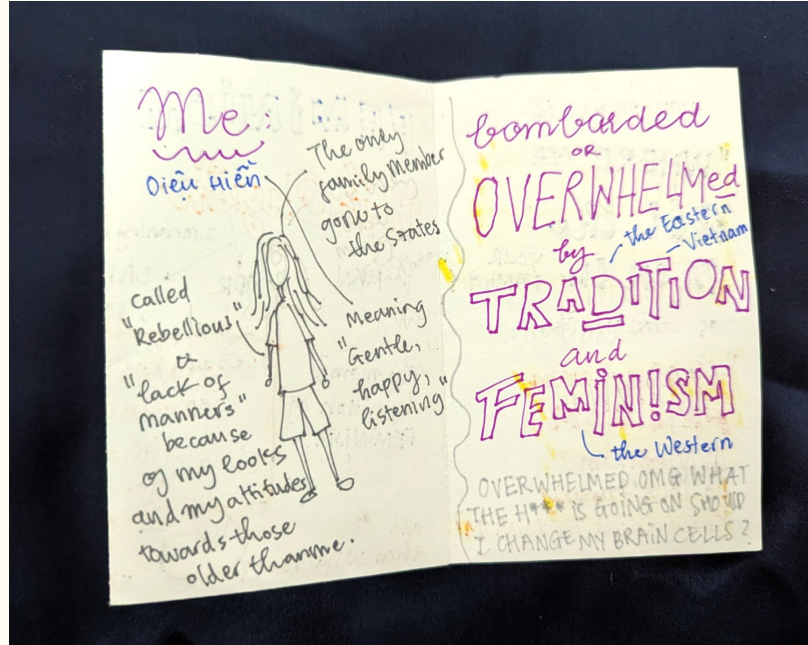 Me:
Diệu Hiền
The only
family member
gone to
the States
called
"Rebellious"
&
"lack of
manners"
because
of my looks
and my attitudes
towards those
older than me.
Meaning
"Gentle,
happy,
listening"
bombarded
OR
OVERWHELMed
by
the Eastern
- Vietnam
TRADITION
and
FEMINISM
the Western
OVERWHELMED OMG WHAT
THE H*** IS GOING ON SHOULD
I CHANGE MY BRAIN CELLS?